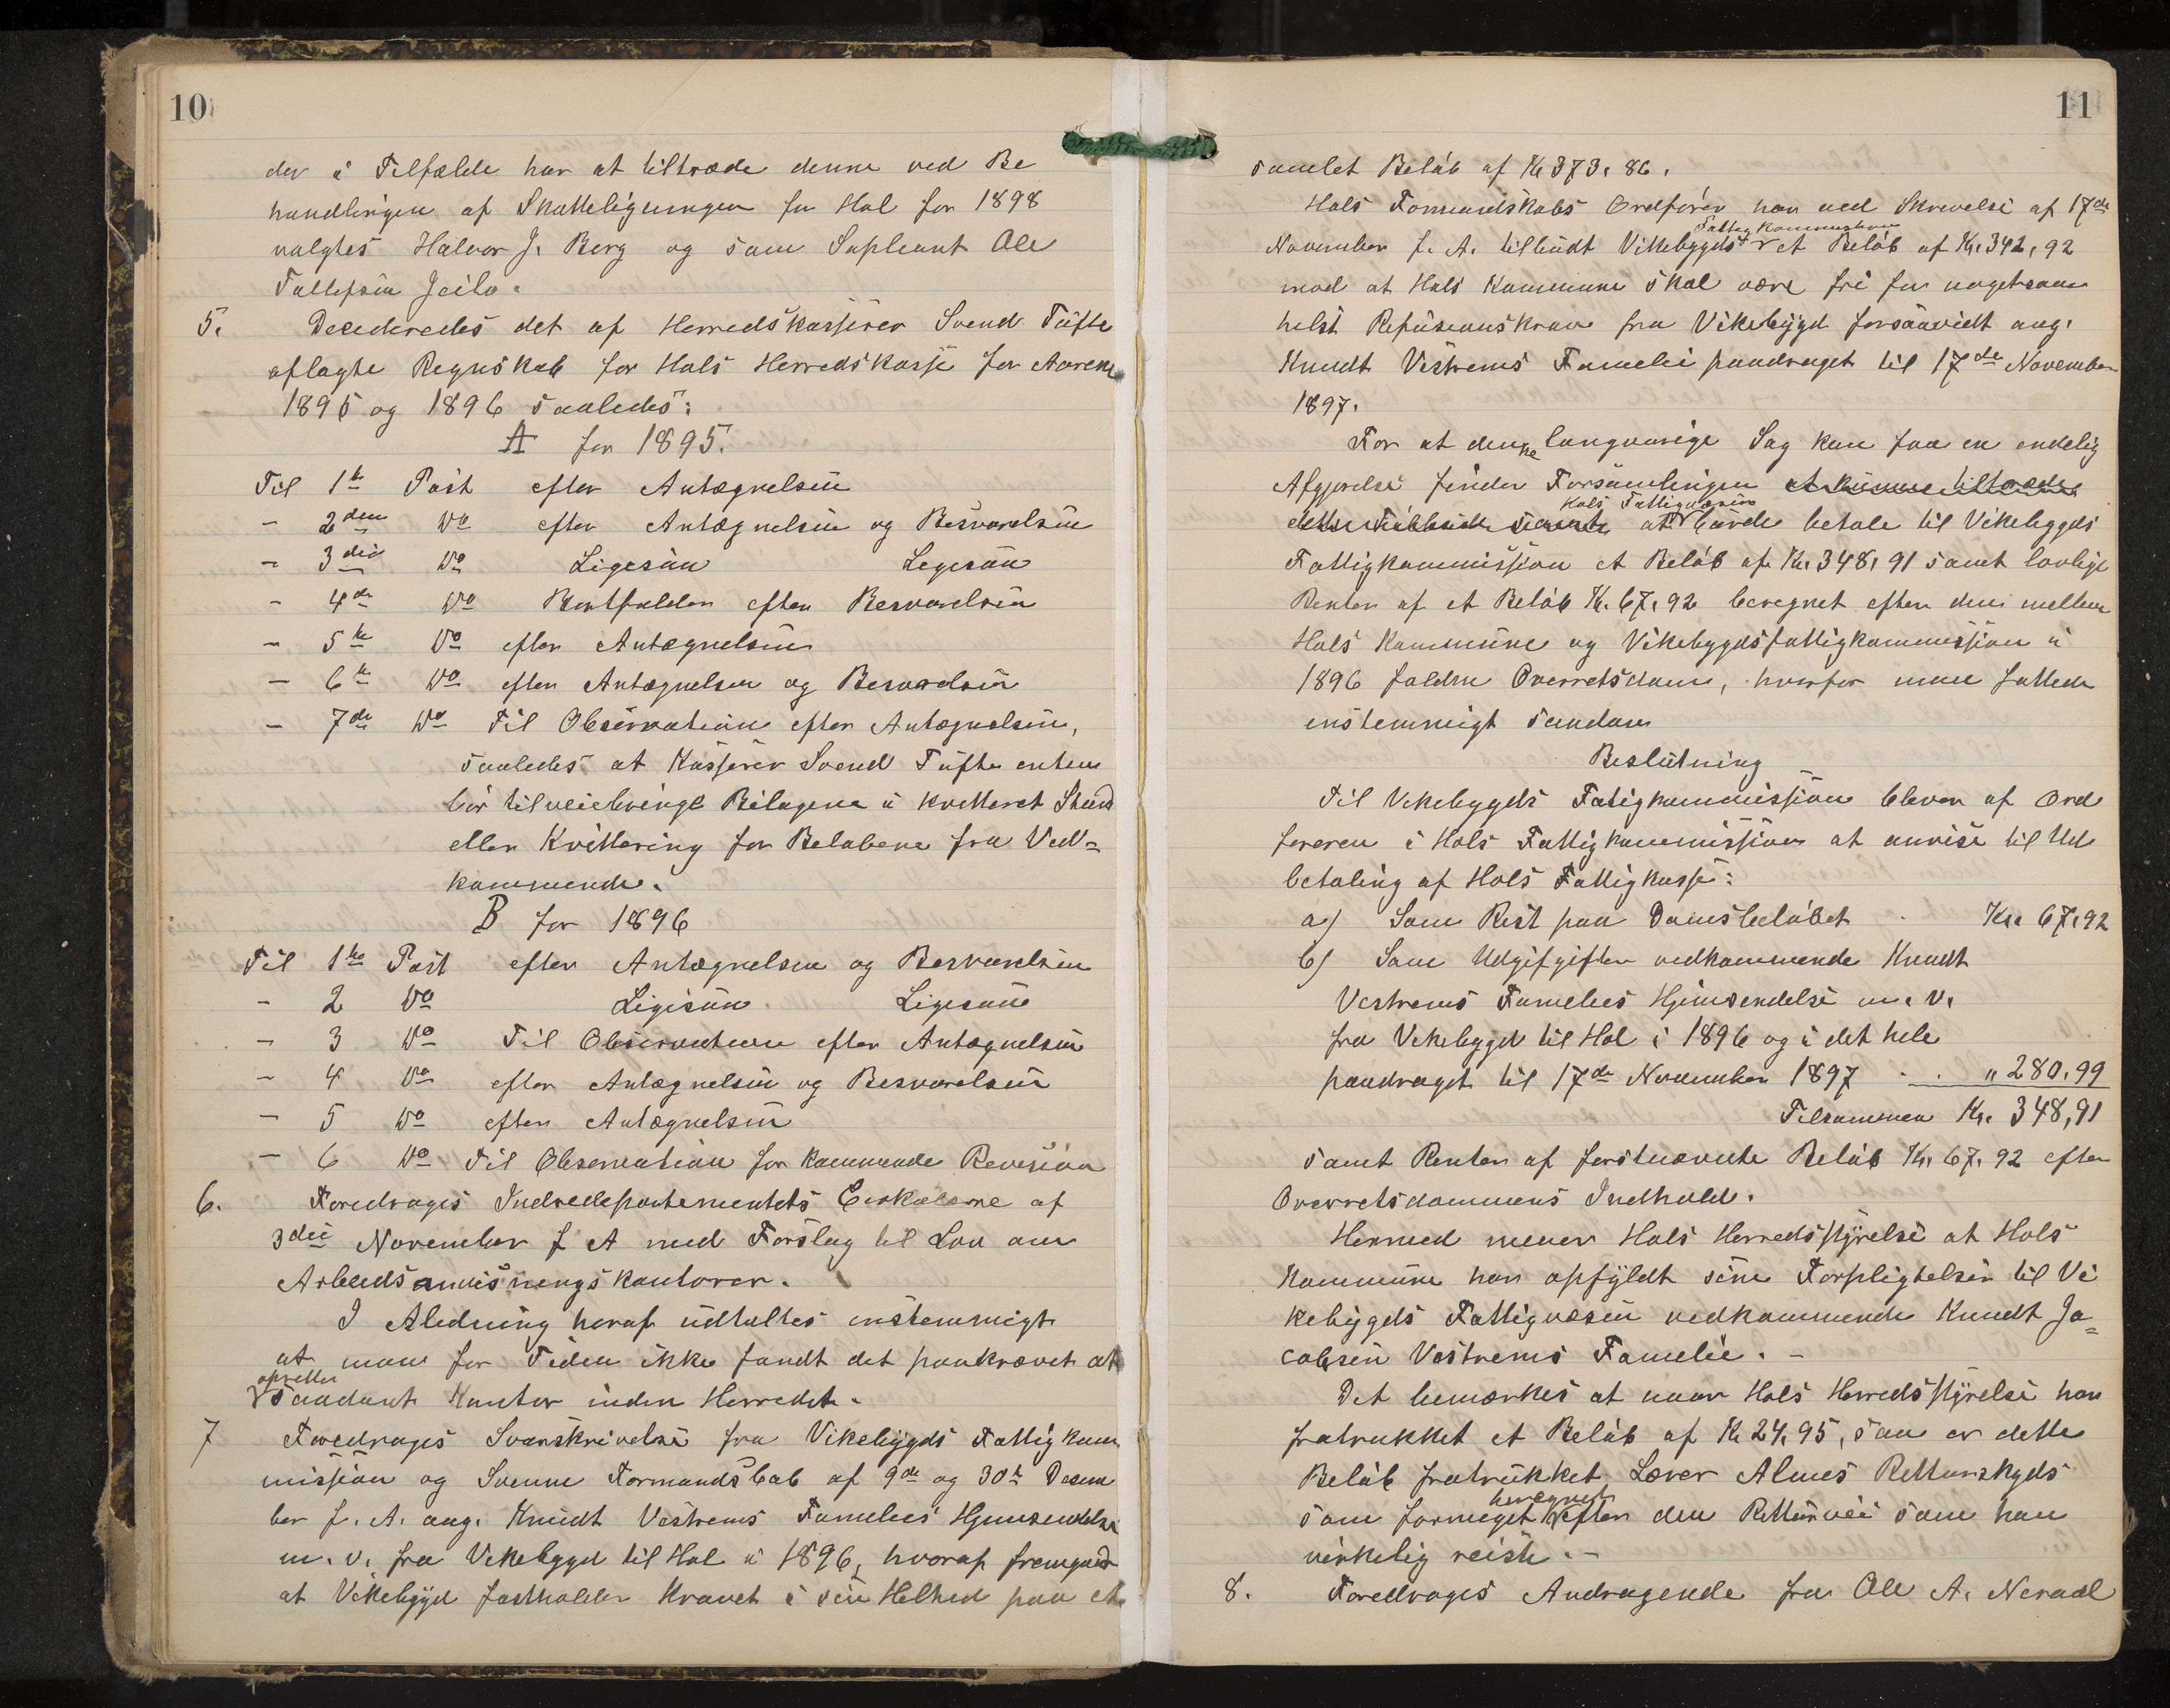 10
der i Tilfælde har at tiltræde denne ved Be
handlingen af Skatteligningen for Hol for 1898
valgtes Halvor J. Berg og som Supleant Ole
Tollefsen Jeilo.
5. Decideredes det af Herredskasserer Svend Tufte
aflagte Regnskab for Hols Herredskasse for Aarene
1895 og 1896 saaledes:
A for 1895.
Til 1te Post efter Antægnelsen
- 2den Do efter Antægnelsen og Besvarelsen
- 3die Do Ligesaa Ligesaa
- 4de Do Bortfalder efter Besvarelsen
- 5te Do efter Antægnelsen
- 6te Do efter Antægnelsen og Besvarelsen
- 7de Do Til Observation efter Antægnelsen,
saaledes at Kasserer Svend Tufte enten
bør tilveiebringe Bilagene i kvitteret Stand
eller Kvittering for Beløbene fra Ved=
kommende.
B for 1896
Til 1te Post efter Antægnelsen og Besvarelsen
- 2 Do Ligesaa Ligesaa
- 3 Do Til Observation efter Antægnelsen
- 4 Do efter Antægnelsen og Besvarelsen
- 5 Do efter Antægnelsen
- 6 Do Til Observation for kommende Revision
6. Foredrages Indredepartementets Cirkulære af
3die November f A med Forslag til Lov om
Arbeidsanvisningskontorer.
I Aledning heraf udtaltes enstemmigt
at man for Tiden ikke fandt det paakrævet at
oprette
saadant Kontor inden Herredet.
7 Foredrages Svarskrivelse fra Vikebygds Fattigkom
mission og Formandskab af 9de og 30te Desem
ber f. A. ang. Knudt Vestrems Famelies Hjemsendelse
m. v. fra Vikebygd til Hol i 1896, hvoraf fremgaar
at Vikebygd fastholder Kravet i sin Helhed paa et
11
samlet Beløb af Kr 373,86.
Hols Formandskabs Ordfører har ved Skrivelse af 17de
Fattigkommission
November f. A. tilbudt Vikebygds et Beløb af Kr. 342,92
mod at Hols Kommune skal være fri for nogetsom
helst Refusionskrav fra Vikebygd forsaavidt ang.
Knudt Vestrems Famelie paadraget til 17de November
1897.
For at denne langvarige Sag kan faa en endelig
Afgjørelse finder Forsamlingen at kunne tiltræde
Hols Fattigvæsen
dette Tilbud at burde betale til Vikebygds
Fattigkommission et Beløb af Kr. 348,91 samt lovlige
Renter af et Beløb Kr. 67,92 beregnet efter den mellem
Hols Kommune og Vikebygds fattigkommission i
1896 faldne Overretsdom, hvorfor man fattede
enstemmigt saadan
Beslutning
Til Vikebygds Fatigkommission bliver af Ord
føreren i Hols Fattigkommission at anvise til Ud
betaling af Hols Fattigkasse:
a) Som Rest paa Domsbeløbet Kr. 67,92
b) Som Udgifgifter vedkommende Knudt
Vestrems Famelies Hjemsendelse m. v.
fra Vikebygd til Hol i 1896 og i det hele
paadraget til 17de November 1897 " 280,99
Tilsammen Kr. 348,91
samt Renter af førstnævnte Beløb Kr. 67,92 efter
Overretsdommens Indhold.
Hermed mener Hols Herredsstyrelse at Hols
Kommune har opfyldt sine Forpligtelser til Vi
kebygds Fattigvæsen vedkommende Knudt Ja=
cobsen Vestrems Famelie. -
Det bemærkes at naar Hols Herredsstyrelse har
fratrukket et Beløb af Kr 24,95, saa er dette
Beløb fratrukket Lærer Almes Retturskyds
beregnet
som formeget efter den Retturvei som han
virkelig reiste. -
8. Foredrages Andragende fra Ole A. Neraal